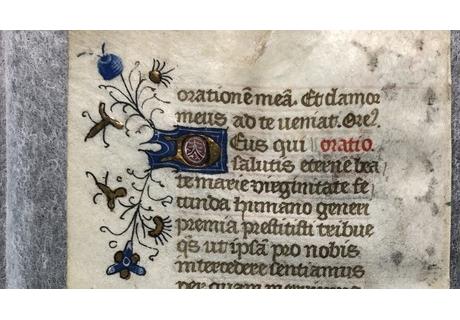 orationē meā. Et clamor
meus ad te veniat. Orem⁹.
Deus qui oratio.
salutis eterne bea
te marie virginitate fe
cunda humano generi
premia prestitisti tribue
qs̄ ut ipsā pro nobis
intercedere sentiamus
per quam meruimus